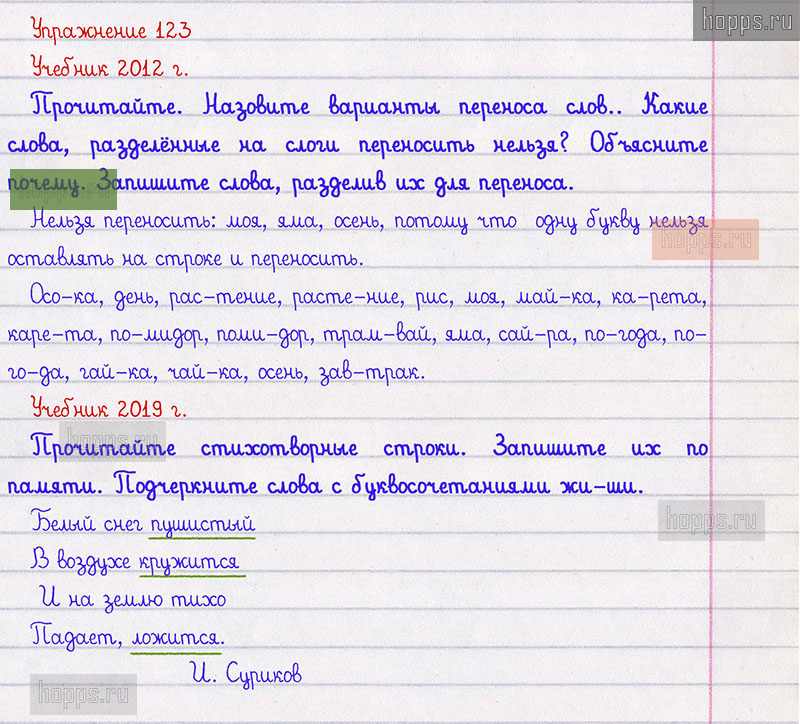 hopps.ru
Упражнение 123
Учебник 2012 г.
Прочитайте. Назовите варианты переноса слов.. Какие
слова, разделённые на слоги переносить нельзя? Объясните
почему. Запишите слова, разделив их для переноса.
hopps.ru
Нельзя переносить: моя, яма, осень, потому что одну букву нельзя
hopps.ru
оставлять на строке и переносить.
Осо-ка, день, рас-тение, расте-ние, рис, моя, май-ка, ка-рета,
каре-та, по-мидор, поми-дор, трам-вай, яма, сай-ра, по-года, по-
го-да, гай-ка, чай-ка, осень, зав-трак.
Учебник 2019 г.
hopps.ru
Прочитайте стихотворные строки. Запишите их по
памяти. Подчеркните слова с буквосочетаниями жи-ши.
Белый снег пушистый
hopps.ru
В воздухе кружится
И на землю тихо
Падает, ложится.
И. Суриков
hopps.ru